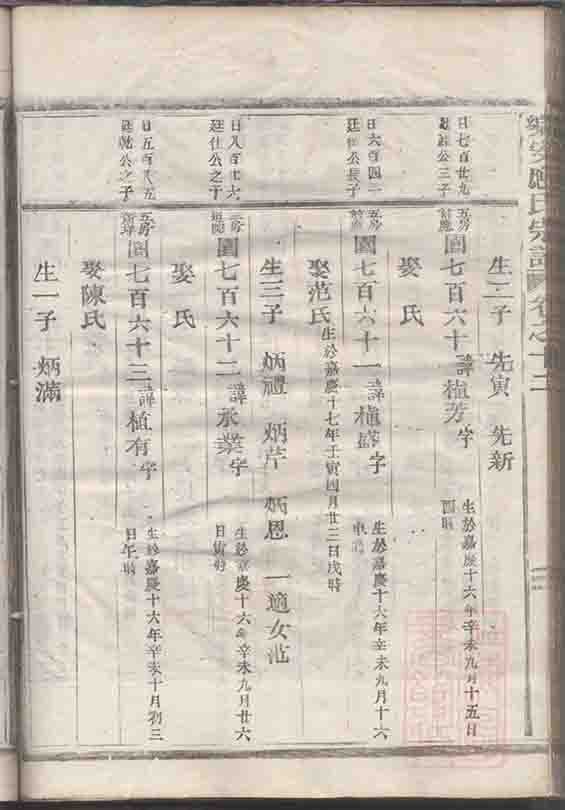 樂安應氏宗譜 卷之十二
生二子 先寅 先新
日七百廿九
公三子
五房
園七百六十 諱植芳 字
生於嘉慶十六年辛未九月十五日
酉時
娶 氏
日六百四一
廷 公長子
五房
園七百六十一 諱植盛 字
生於嘉慶十六年辛未九月十六
娶范氏
生於嘉慶十七年壬寅四月廿三日戌時
生三子 炳禮 炳芹 炳恩 一適女
日八百七六
廷仕公之子
園七百六十二 諱承業 字
生於嘉慶十六年辛未九月廿六
日寅時
娶 氏
日五百八五
廷乾公之子
五房
園七百六十三 諱植有 字
生於嘉慶十六年辛亥十月初三
日午時
娶陳氏
生一子 炳滿